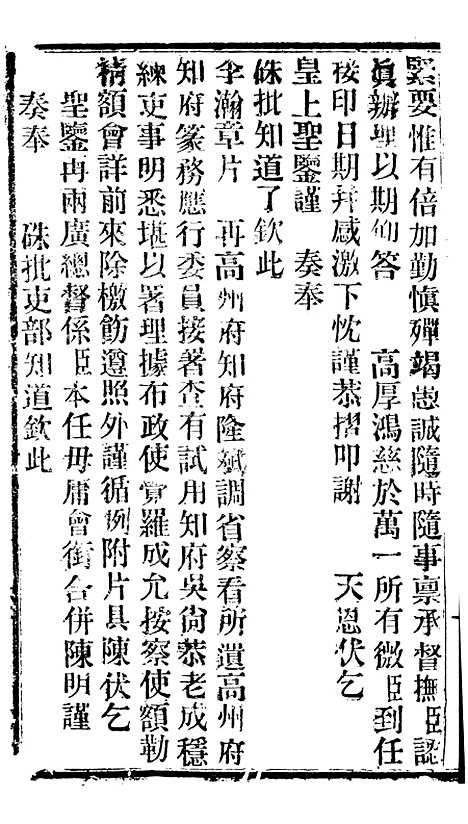 緊要惟有倍加勤慎殫竭愚誠隨時隨事稟承督撫臣認
眞辦理以期仰答　高厚鴻慈於萬一所有微臣到任
接印日期幷感激下忱謹恭摺叩謝　天恩伏乞
皇上聖鑒謹　奏奉
硃批知道了欽此
李瀚章片　再高州府知府隆斌調省察看所遺高州府
知府篆務應行委員接署查有試用知府吳尙恭老成穩
練吏事明悉堪以署理據布政使覺羅成允按察使額勒
精額會詳前來除檄飭遵照外謹循例附片具陳伏乞
聖鑒再兩廣總督係臣本任毋庸會銜合併陳明謹
奏奉　硃批吏部知道欽此